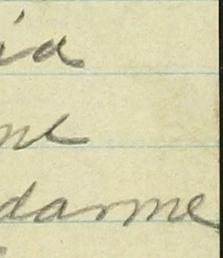 ia
ne
darme